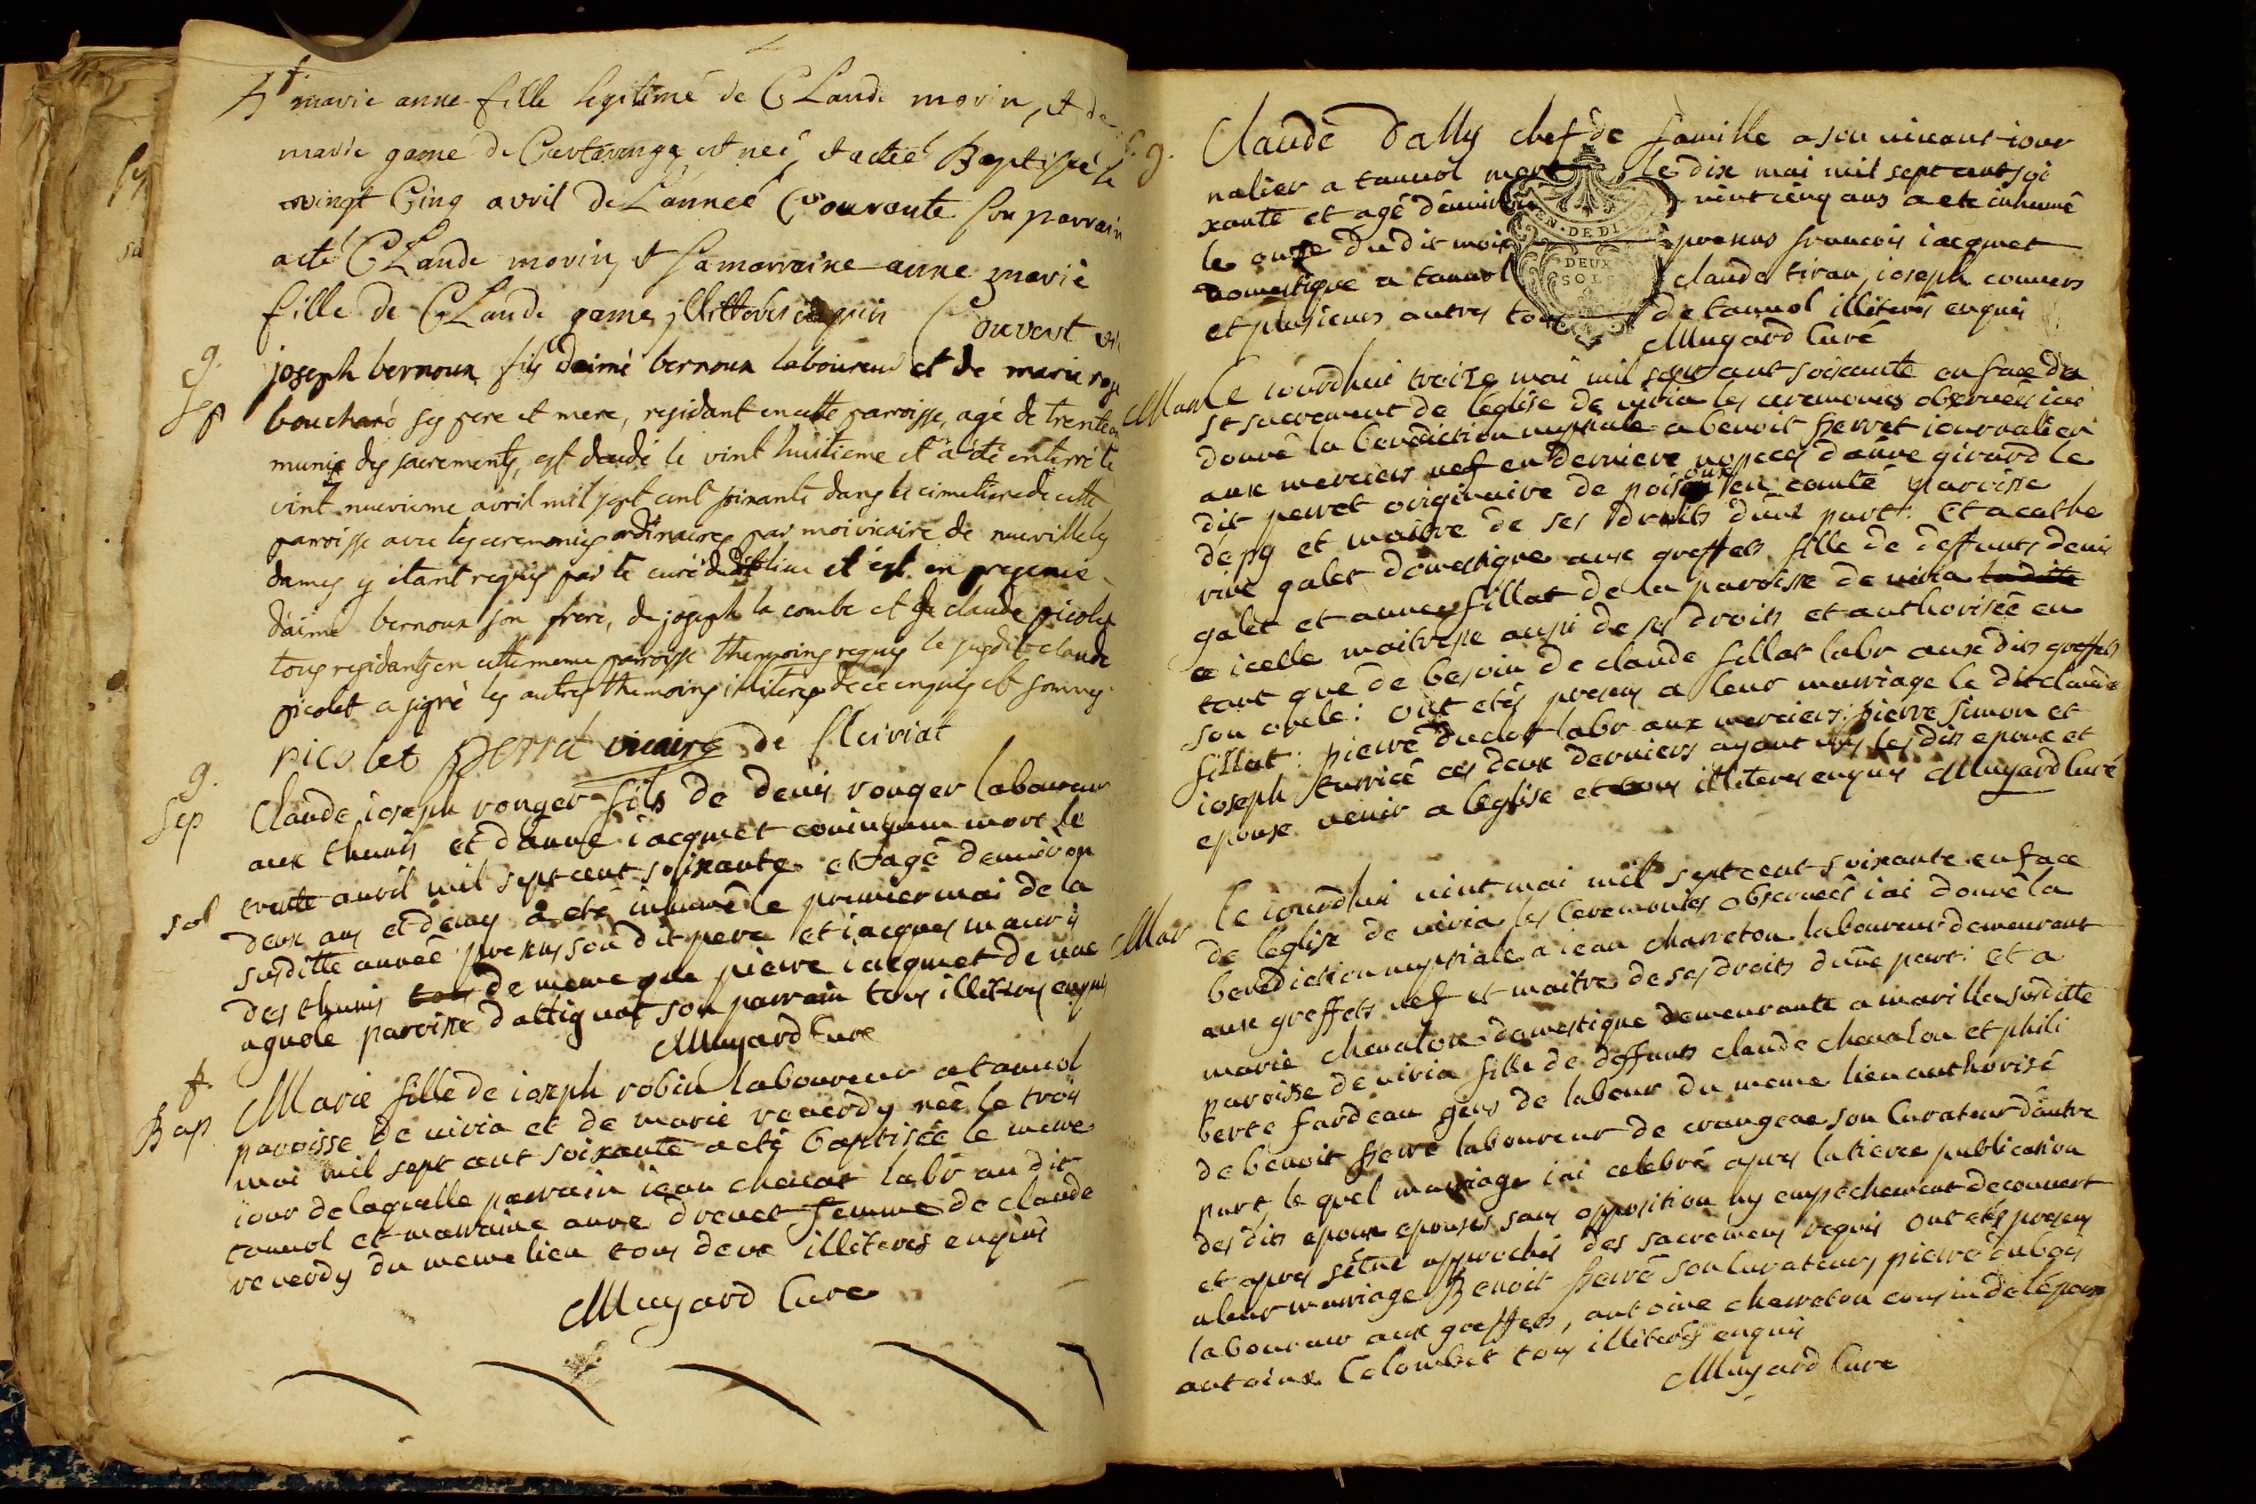 f.
marie anne fille legitime de CLaude morin, et de
marie game de Curtaringe est neé, et a eté Baptisée le
vingt Cinq avril de Lanneé Courante son parrain
a eté CLaude morin, et sa marraine anne marie
fille de CLaude game, jllitterés enquis Couvert vic
g.
Sep
joseph bernoux fils daimé bernoux laboureur et de marie rose
bouchard ses pere et mere, residant en cette paroisse, agé de trente ans
munie des sacrements, est decedé le vint huitieme et a été enterré le
vint nuevieme avril mil sept cent soixante dans le cimetiere de cette
paroisse avec les ceremonies ordinaires par moi vicaire de neuville les
dames y étant requis par le curé dudit lieu et c'est en presence
daimé bernoux son frere, de joseph la combe et de claude picolet
tous residants en cette meme paroisse themoins requis le susdit claude
picolet a signé les autres themoins illiteres de ce enquis et sommes
picolet perrat vicaire de fleiriat
g.
Sep
sol
Claude ioseph ronger fils de denis ronger laboureur
aux thunis et danne iacquet conjugaux mort le
trente auril mil sept cent soixante et agé denuiron
deux ans et demy a eté inhumé le premier mai de la
susditte année presens son dit pere et iacques mauris
des thunis de meme que pierre iacquet de une
agnole paroisse dattignat son parrain tous illiteres enquis
Mugard Cure
f.
Bap
Marie fille de ioseph robin laboureur a tannol
paroisse de uiria et de marie reuerdy neé le trois
mai mil sept cent soixante a eté baptisée le meme
iour de laquelle parrain iean labr au dit
tannol et marraine anne drenet femme de claude
reuerdy du meme lieu tous deux illiteres enquis
Mugard Cure
g.
Claude dally chef de famille a son uiuant iour
nalier a tannol mort le dix mai mil sept cent soi
xante et agé denuiron uint cinq ans a ete inhumé
le onze du dit mois presens francois iacquet
domestique a tannol claude tiran, ioseph conuers
et plusieurs autres tous de tannol illiterés enquis
Mugard Curé
EN · DE DI
DEUX
SOLS
Mar
Ce iourdhui treize mai mil sept cent soixante en face du
st sacrement de leglise de uiria les ceremonies obseruées iai
donné la benediction nuptiale a benoit ferret iournalier
aux merciers uef en derniere nopces danne girard le
dit perret originaire de en comté paroisse
dépy et maitre de ses droits dune part. Et a cathe
rine galet domestique aux greffets fille de deffunts denis
galet et anne fillat de la paroisse de uiria
icelle maitresse ausi de ses droits et authorisée en
tant que de besoin de claude fillat labr aux dits greffets
son oncle: ont etés presens a leur mariage le dit claude
fillat: pierre duclos labr aux merciers: pierre simon et
ioseph ces deux derniers ayant uus les dits epoux et
epouse uenir a leglise et tous illiteres enquis Mugard Curé
Mar
Ce iourdhui uint mai mil sept cent soixante en face
de leglise de uiria les Ceremonies obserueés iai donné la
benediction nuptiale a iean charreton laboureur demeurant
aux greffets uef et maitre de ses droits dune part: et a
marie cheualon domestique demeurante a marilla susditte
paroisse de uiria fille de deffunts claude cheualon et phili
berte fardeau gens de labour du meme lieu authorisé
de benoit ferré laboureur de crangeac son Curateur dautre
part, le quel mariage iai celebré apres la tierce publication
des dits epoux epouses sans opposition ny empechement decouuert
et apres sêtre approchés des sacremens requis ont etés presens
a leur mariage Benoit ferré son Curateur, pierre dubois
laboureur aux greffets, antoine charreton cousin de lépoux
antoine Colombet tous illiterés enquis
Mugard Cure